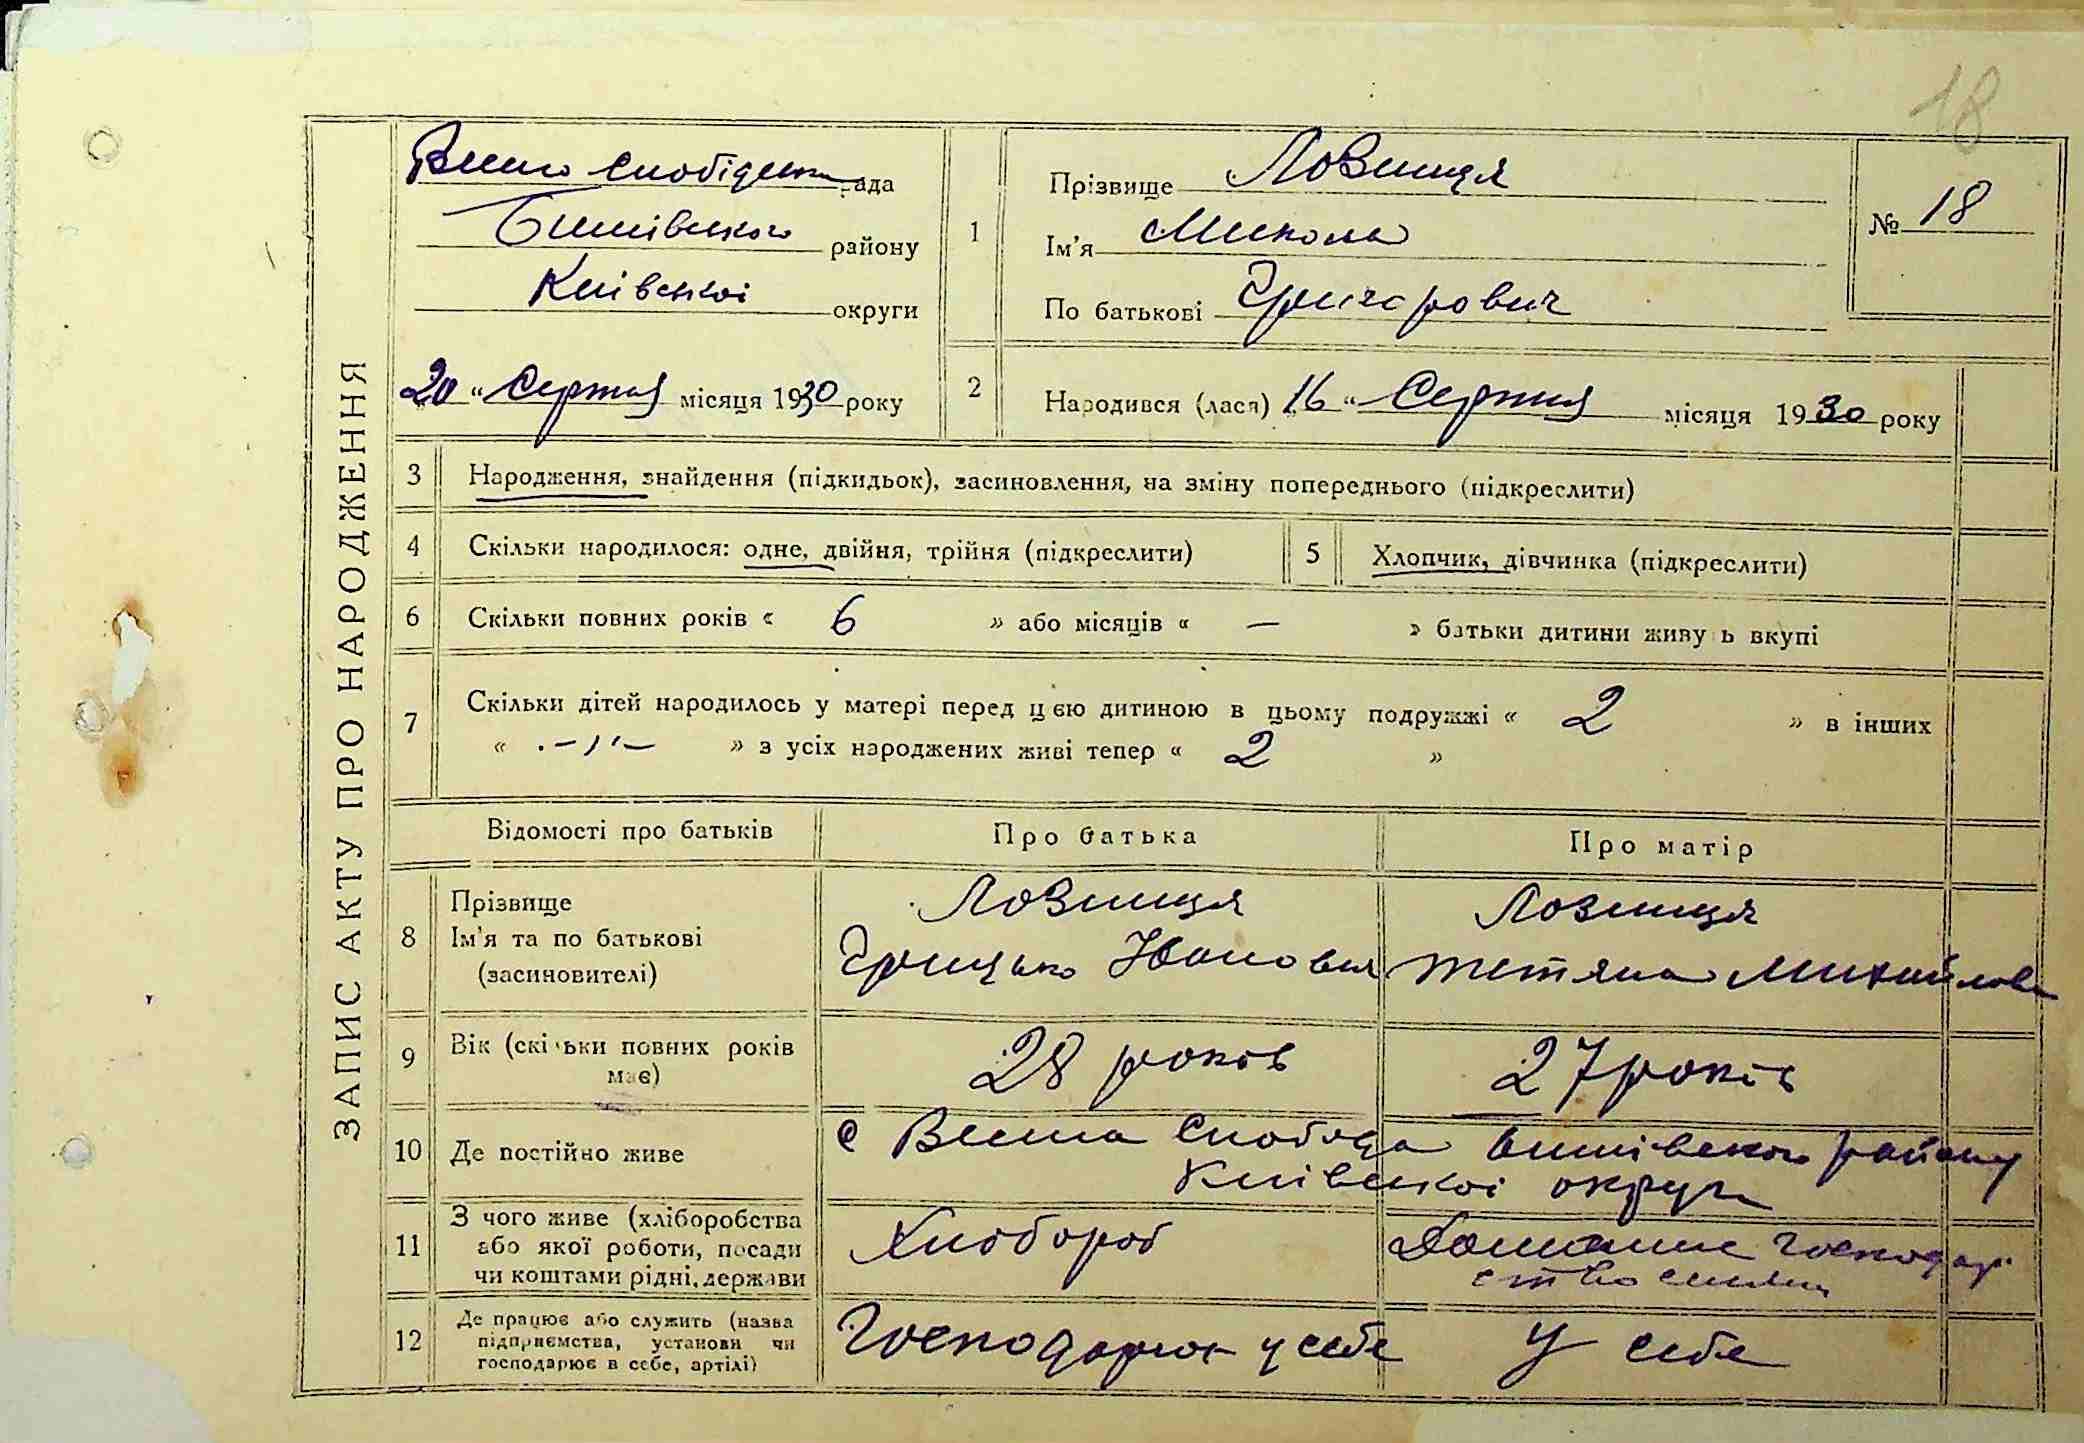 18
ЗАПИС АКТУ ПРО НАРОДЖЕННЯ
Вишо Слобідська рада
Бишівського району
Київської округи
20 " Серпня місяця 1930 року
1 Прізвище Лозниця
Ім'я Микола
По батькові Григорович
№ 18
2 Народився (лася) 16 " Серпня місяця 1930 року
3 Народження, знайдення (підкидьок), засиновлення, на зміну попереднього (підкреслити)
4 Скільки народилося: одне, двійня, трійня (підкреслити)
5 Хлопчик, дівчинка (підкреслити)
6 Скільки повних років « 6 » або місяців « — » батьки дитини живуть вкупі
7 Скільки дітей народилось у матері перед цією дитиною в цьому подружжі « 2 » в інших
« -,,- » з усіх народжених живі тепер « 2 »
Відомості про батьків Про батька Про матір
8 Прізвище
Ім'я та по батькові
(засиновителі)
Лозниця
Грицько Іванович
Лозниця
Тетяна Михайлова
9 Вік (скільки повних років
має)
28 років
27 років
10 Де постійно живе
с Вишa Слобода Бишівського району
Київської округи
11 З чого живе (хліборобства
або якої роботи, посади
чи коштами рідні, держави
Хлобороб
Домашнє господар
ство
12 Де працює або служить (назва
підприємства, установи чи
господарює в себе, артілі)
Господарює у себе
У себе